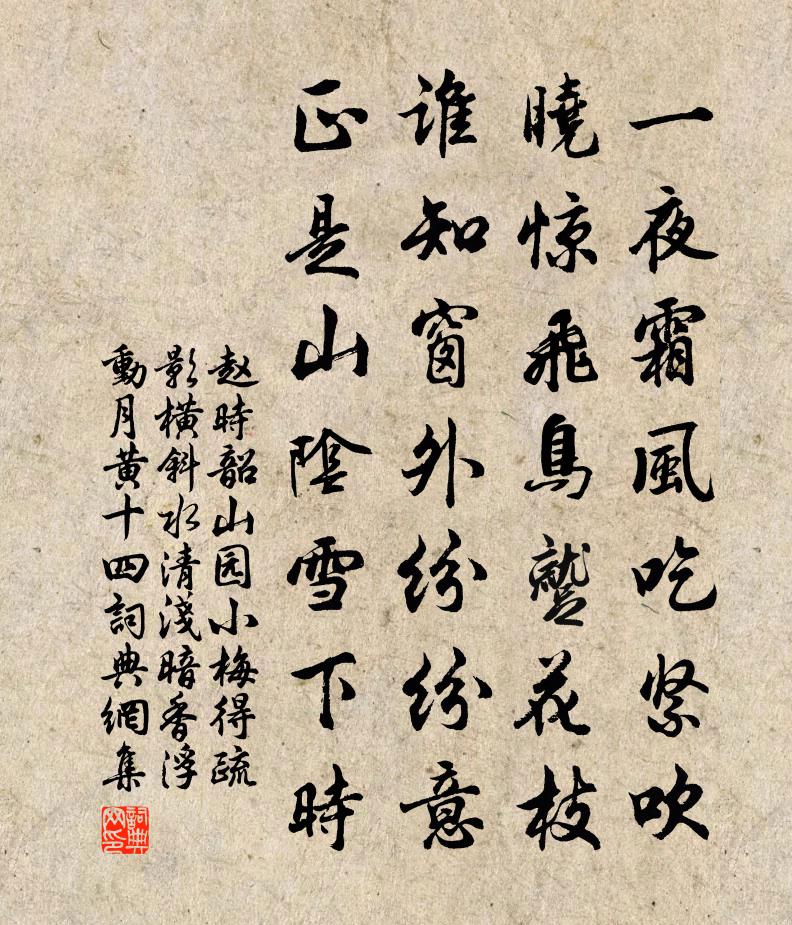 一夜霜風吃紧吹
曉惊飛鳥花枝
谁知窗外纷纷意
正是山陰雪下時
赵時韶山园小梅得疏
影橫斜水清淺暗香浮
動月黄十四詞典網集
詞典网印